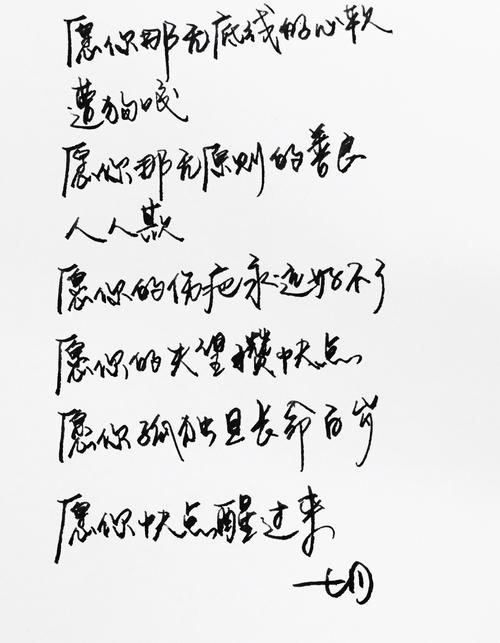 愿你那无底线的心软
遭狗咬
愿你那无原则的善良
人人欺
愿你的伤疤永远好不了
愿你的失望攒快点
愿你孤独且长命百岁
愿你快点醒过来